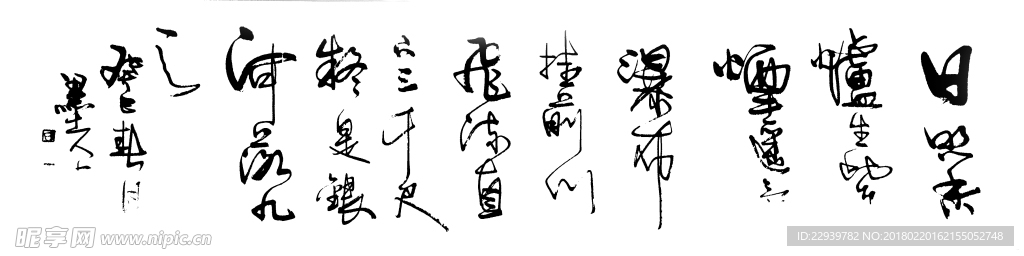 日照香
爐生紫
煙遥看
瀑布
挂前川
飛流直
下三千尺
疑是銀
河落九
天
癸巳春月
昵享网 www.nipic.cn
ID:22939782 NO:20180220162155052748